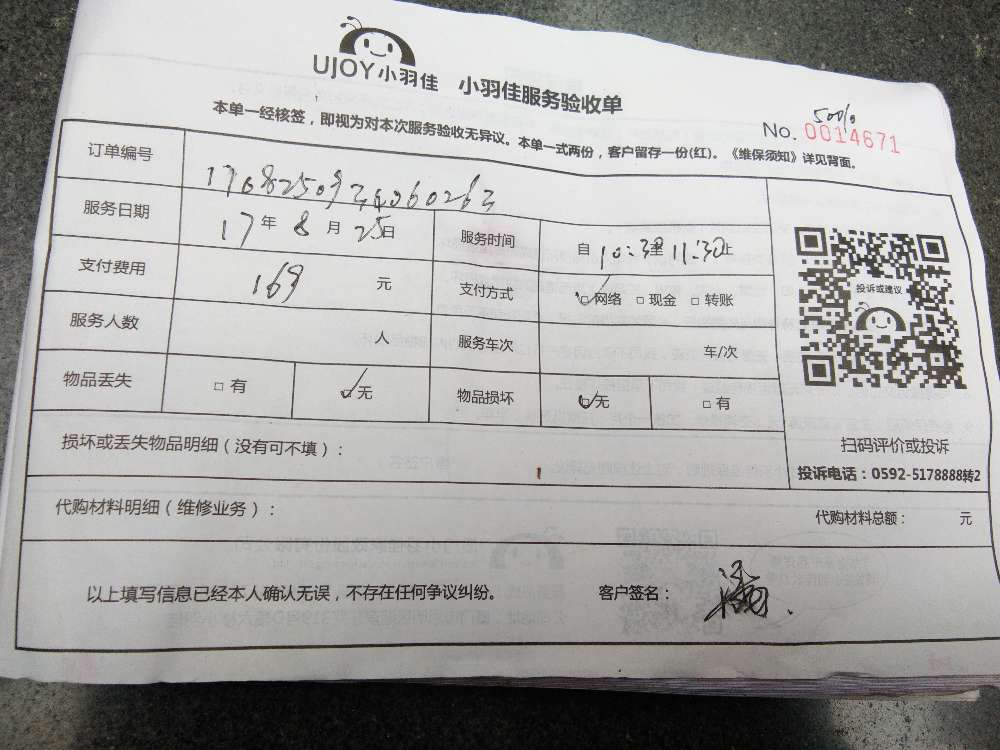 UJOY小羽佳 小羽佳服务验收单
本单一经核签，即视为对本次服务验收无异议。本单一式两份，客户留存一份(红)。《维保须知》详见背面。
No. 0014671
订单编号
服务日期 17年 8月 25日 服务时间 自 10:30至11:30止
支付费用 169 元 支付方式 □网络 □现金 □转账
服务人数 人 服务车次 车/次
物品丢失 □有 □无 物品损坏 □无 □有
投诉或建议
扫码评价或投诉
投诉电话：0592-5178888转2
损坏或丢失物品明细（没有可不填）：
代购材料明细（维修业务）： 代购材料总额： 元
以上填写信息已经本人确认无误，不存在任何争议纠纷。 客户签名：